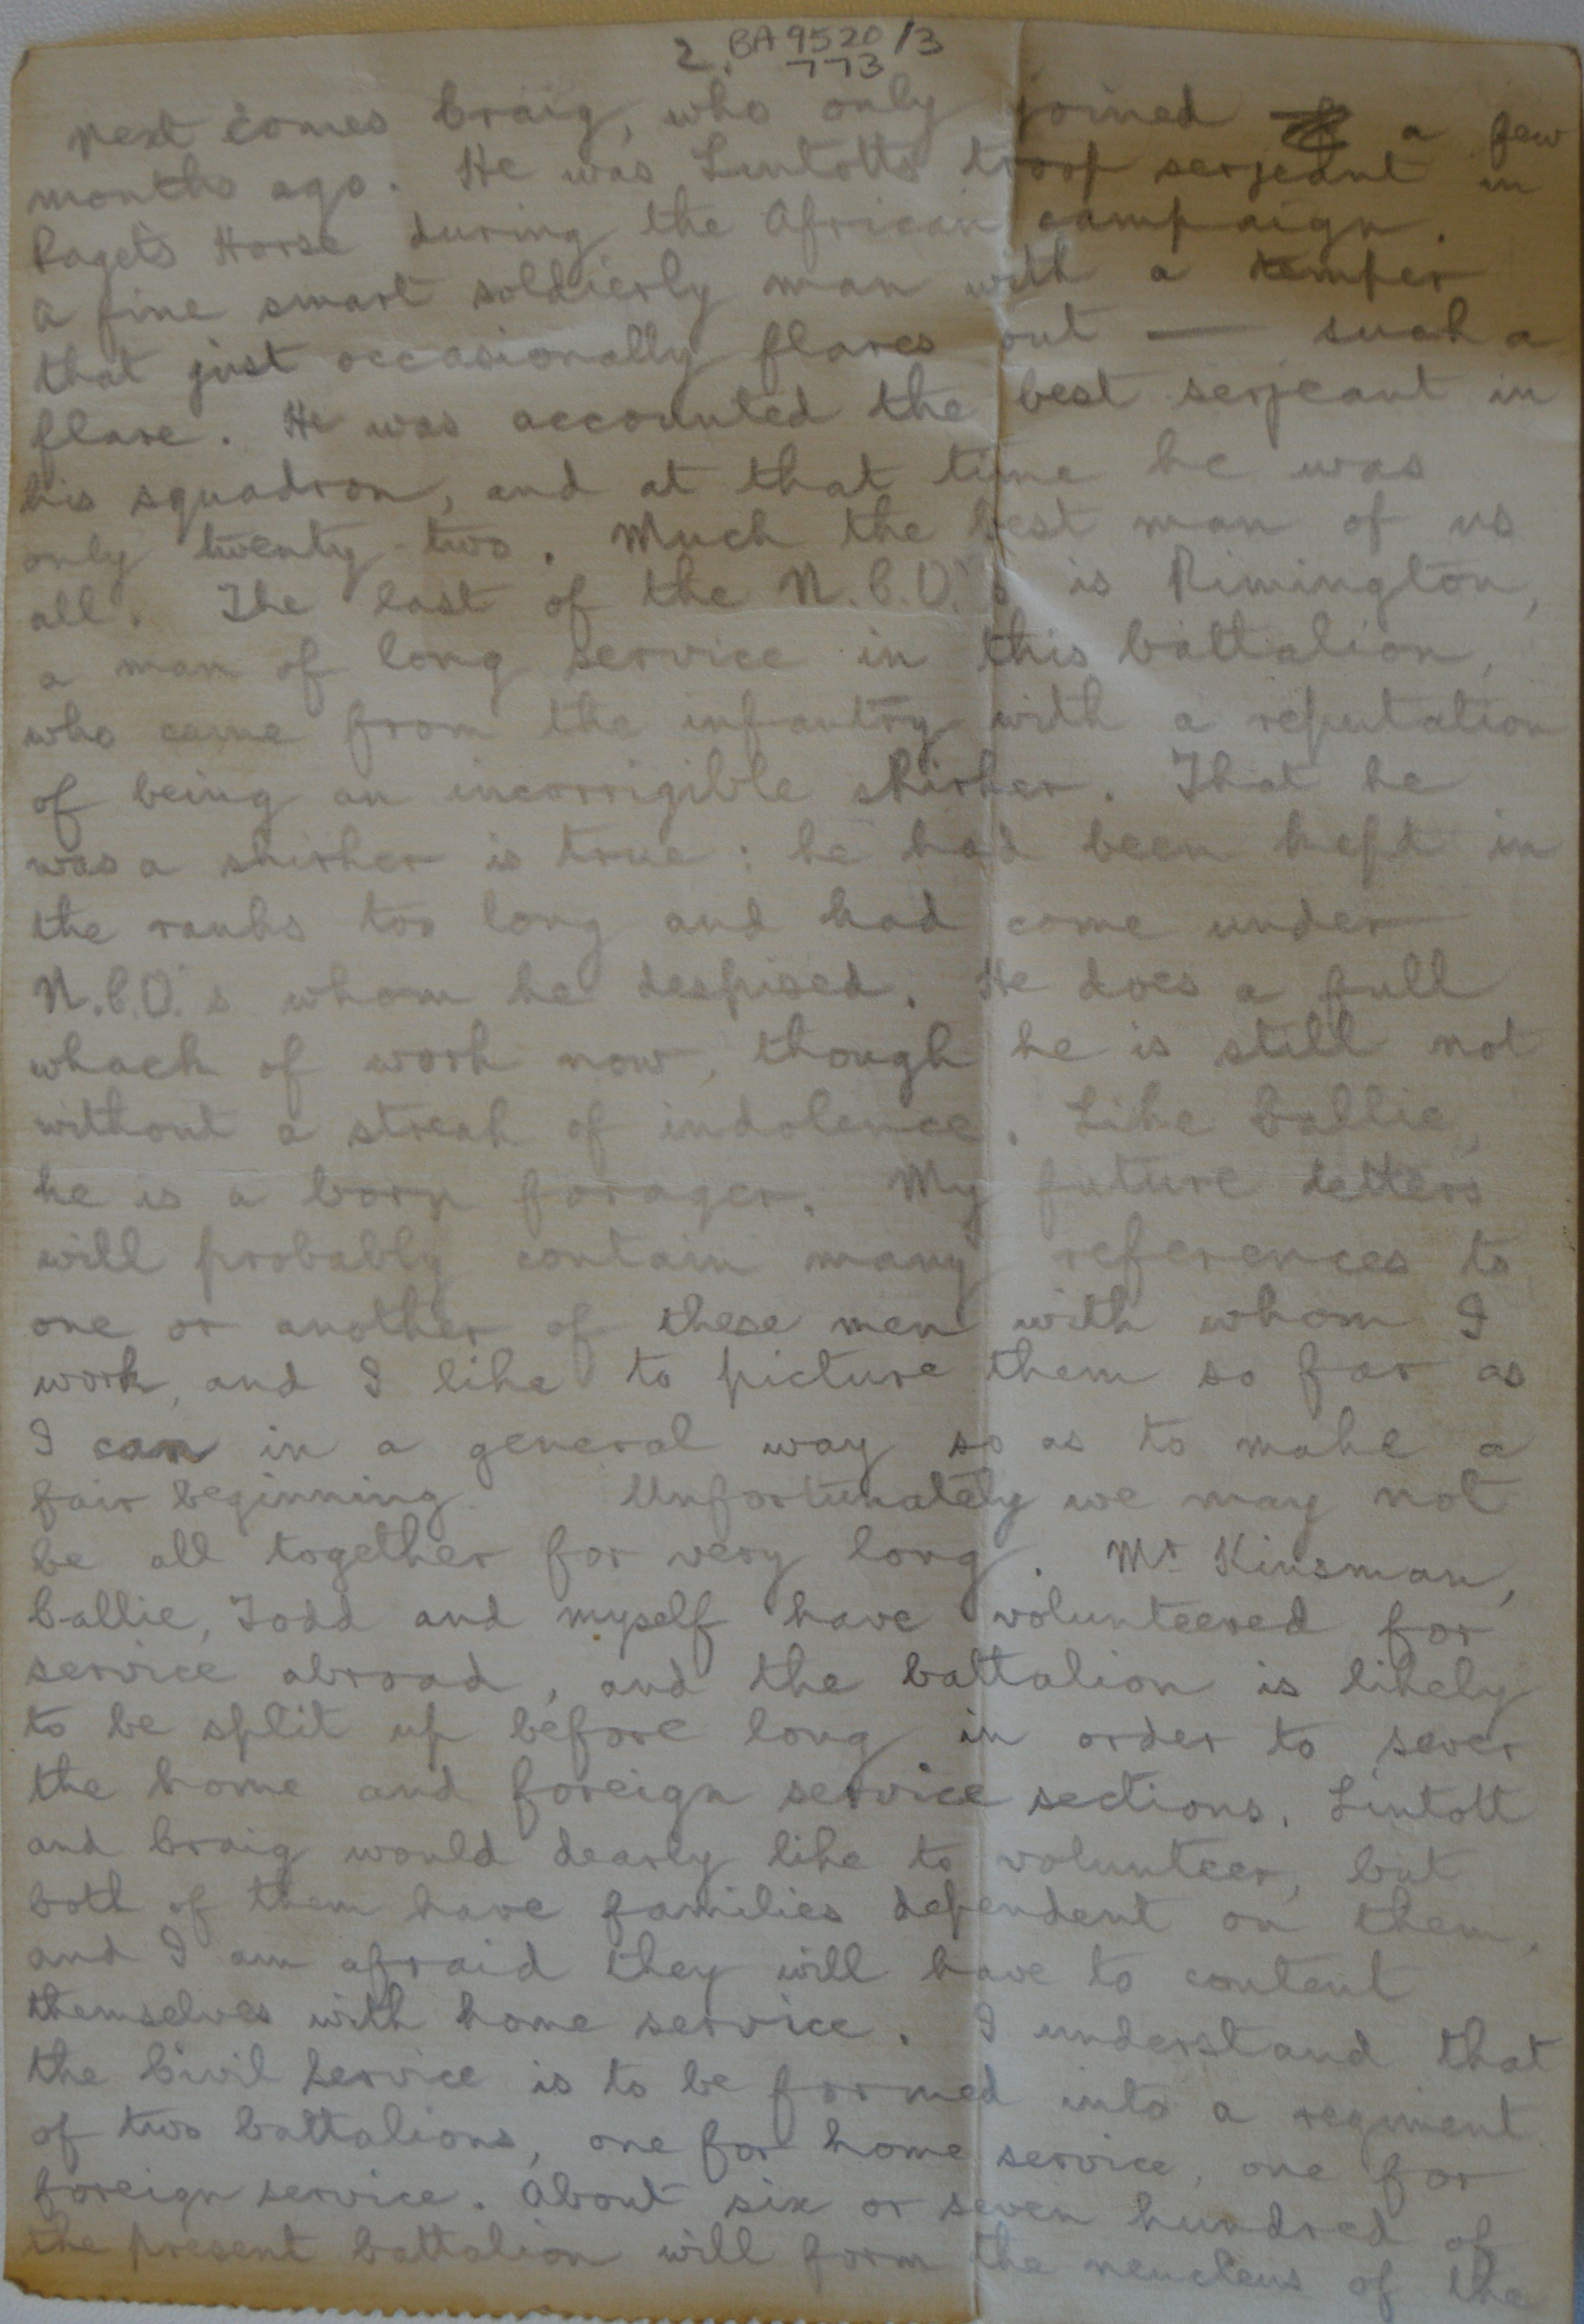 2. BA 9520/3
773
Next comes Craig, who only joined a few
months ago. He was Lintotts troop serjeant in
Pagets Horse during the African campaign.
A fine smart soldierly man with a temper
that just occasionally flares out — such a
flare. He was accounted the best serjeant in
his squadron, and at that time he was
only twenty-two. Much the best man of us
all. The last of the N.C.O.'s is Rimington,
a man of long service in this battalion,
who came from the infantry with a reputation
of being an incorrigible shirker. That he
was a shirker is true: he had been kept in
the ranks too long and had come under
N.C.O.'s whom he despised. He does a full
whack of work now, though he is still not
without a streak of indolence. Like Callie,
he is a born forager. My future letters
will probably contain many references to
one or another of these men with whom I
work, and I like to picture them so far as
I can in a general way so as to make a
fair beginning. Unfortunately we may not
be all together for very long. Mr Kinsman,
Callie, Todd and myself have volunteered for
service abroad, and the battalion is likely
to be split up before long in order to sever
the home and foreign service sections. Lintott
and Craig would dearly like to volunteer, but
both of them have families dependent on them,
and I am afraid they will have to content
themselves with home service. I understand that
the Civil Service is to be formed into a regiment
of two battalions, one for home service, one for
foreign service. About six or seven hundred of
the present battalion will form the neucleus of the